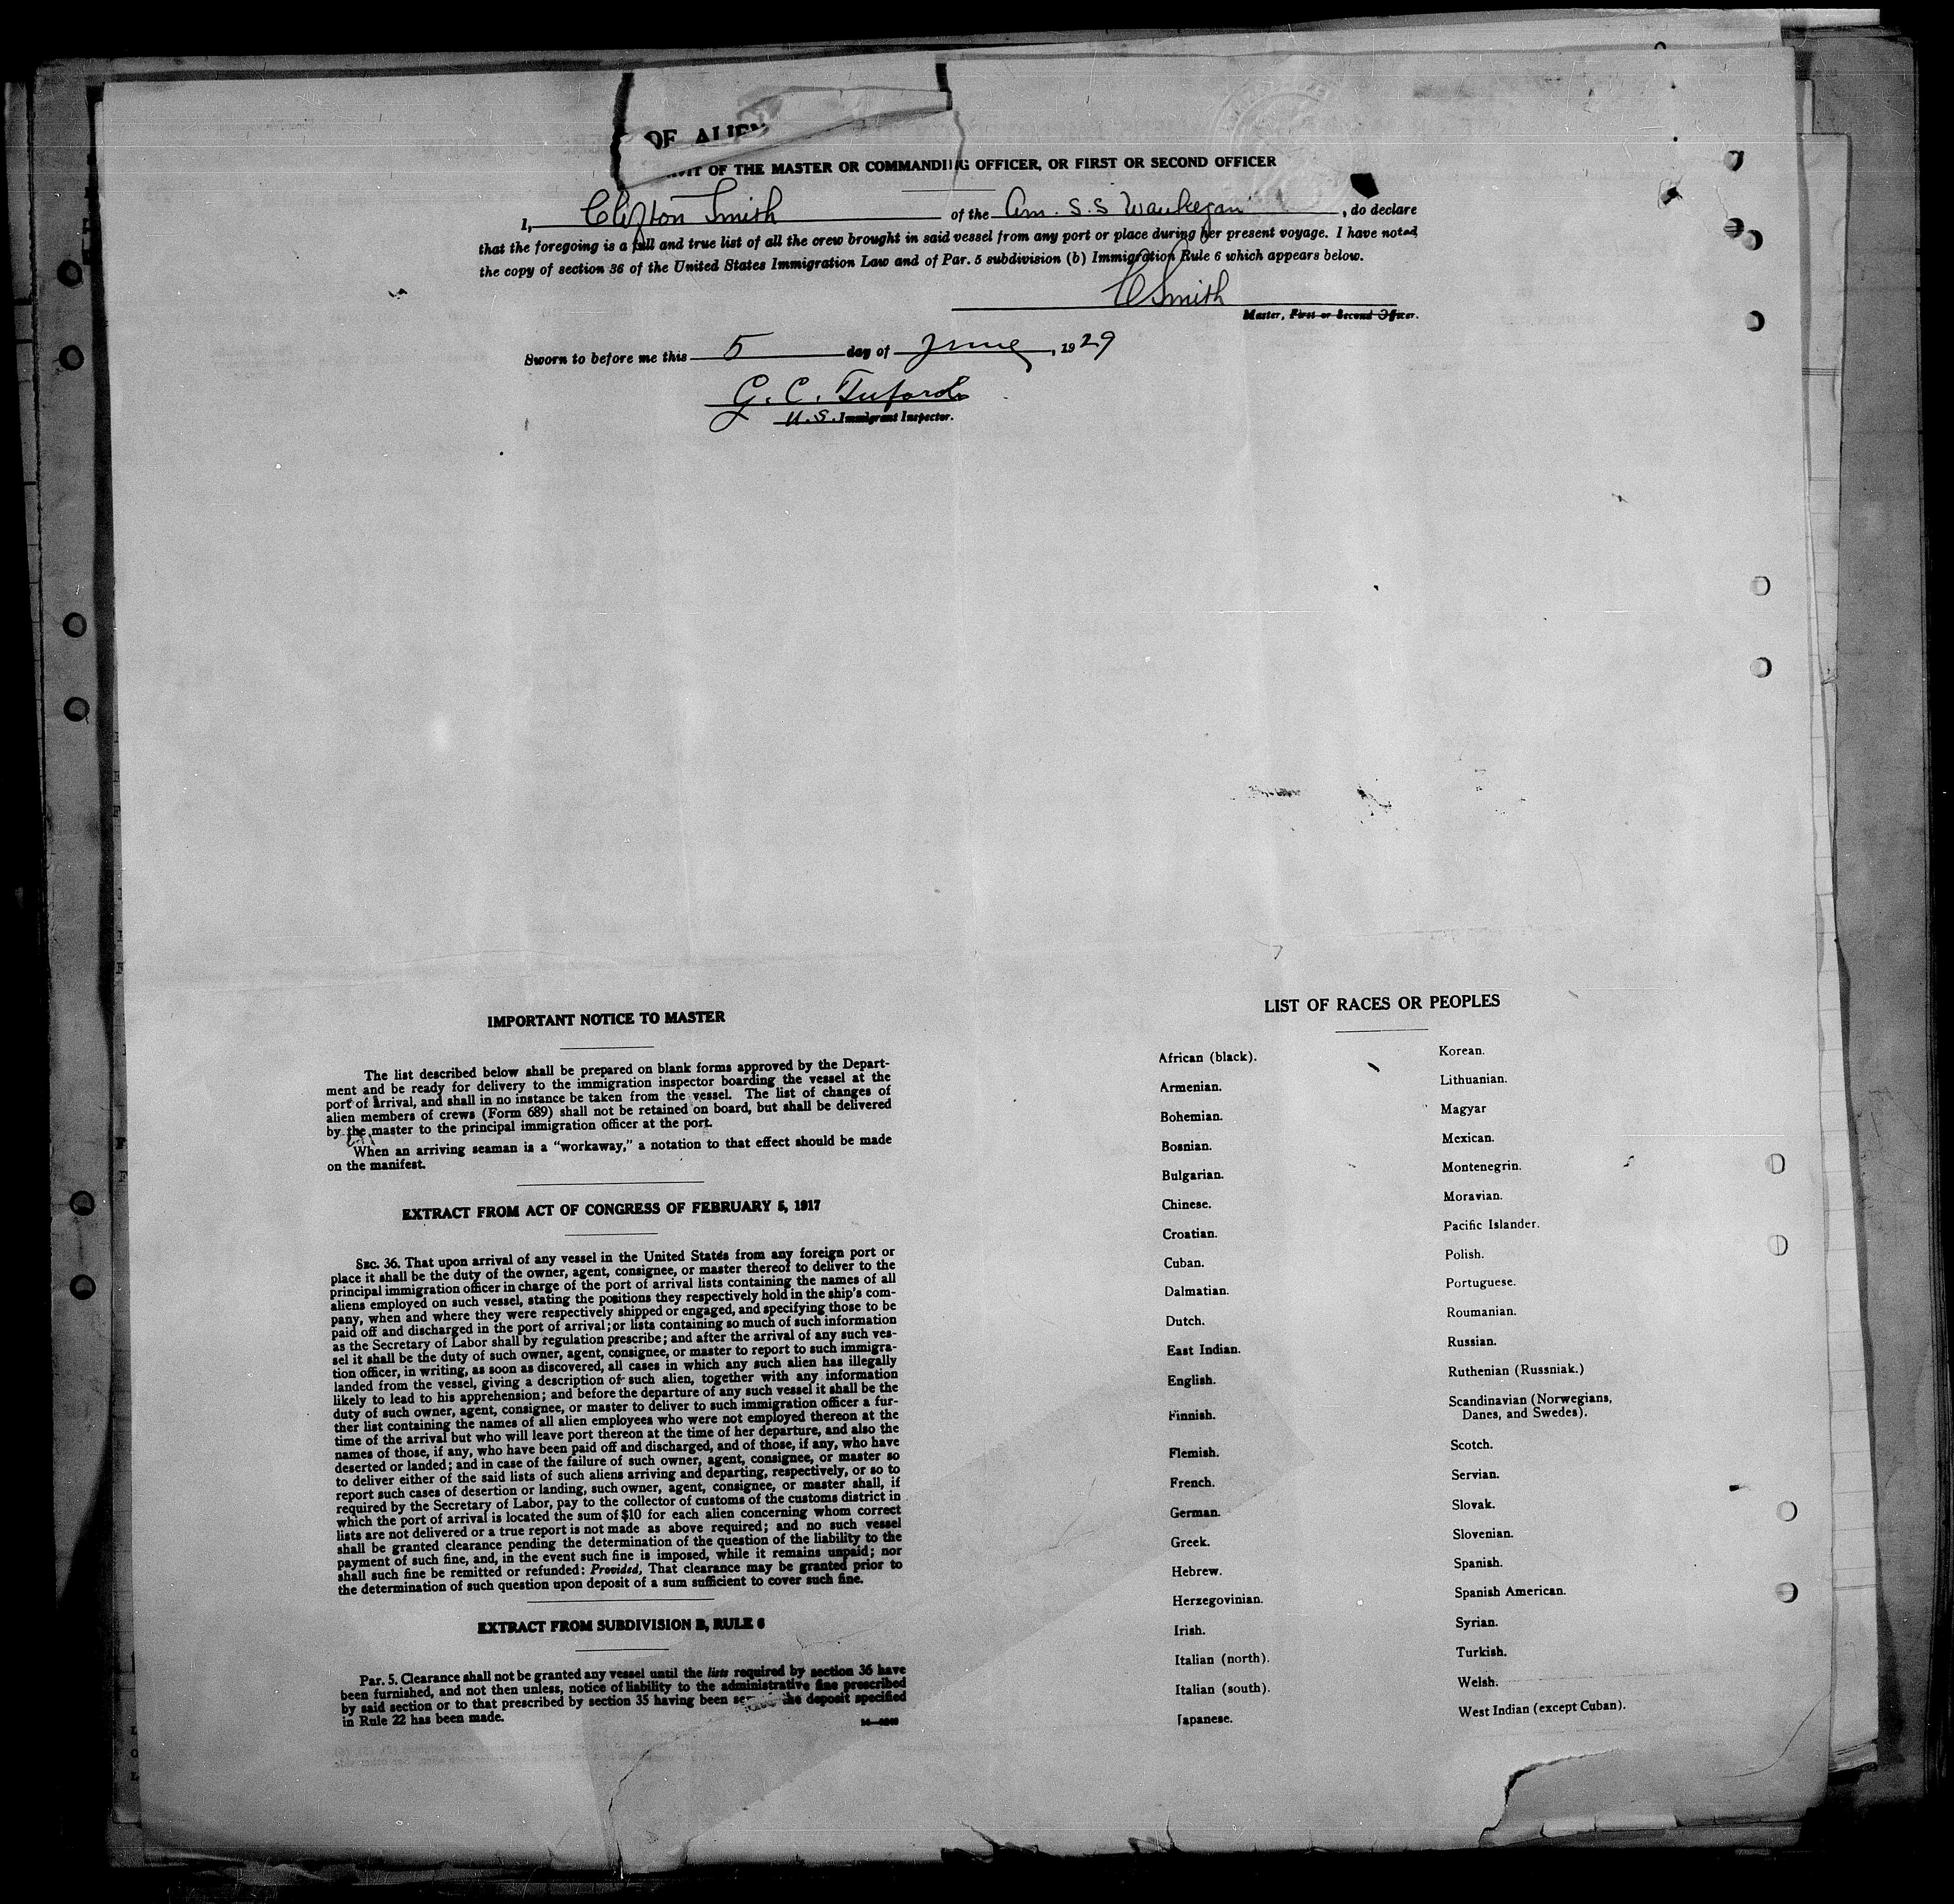 OF ALIEN
OF THE MASTER OR COMMANDING OFFICER, OR FIRST OR SECOND OFFICER
I, Clifton Smith of the Am. S.S Waukegan, do declare
that the foregoing is a full and true list of all the crew brought in said vessel from any port or place during her present voyage. I have noted
the copy of section 36 of the United States Immigration Law and of Par. 5 subdivision (b) Immigration Rule 6 which appears below.
C Smith
Master, First or Second Officer.
Sworn to before me this 5 day of June, 1929
G. C. Tuford
U.S. Immigrant Inspector.
IMPORTANT NOTICE TO MASTER
The list described below shall be prepared on blank forms approved by the Depart-
ment and be ready for delivery to the immigration inspector boarding the vessel at the
port of arrival, and shall in no instance be taken from the vessel. The list of changes of
alien members of crews (Form 689) shall not be retained on board, but shall be delivered
by the master to the principal immigration officer at the port.
When an arriving seaman is a "workaway," a notation to that effect should be made
on the manifest.
EXTRACT FROM ACT OF CONGRESS OF FEBRUARY 5, 1917
SEC. 36. That upon arrival of any vessel in the United States from any foreign port or
place it shall be the duty of the owner, agent, consignee, or master thereof to deliver to the
principal immigration officer in charge of the port of arrival lists containing the names of all
aliens employed on such vessel, stating the positions they respectively hold in the ship's com-
pany, when and where they were respectively shipped or engaged, and specifying those to be
paid off and discharged in the port of arrival; or lists containing so much of such information
as the Secretary of Labor shall by regulation prescribe; and after the arrival of any such ves-
sel it shall be the duty of such owner, agent, consignee, or master to report to such immigra-
tion officer, in writing, as soon as discovered, all cases in which any such alien has illegally
landed from the vessel, giving a description of such alien, together with any information
likely to lead to his apprehension; and before the departure of any such vessel it shall be the
duty of such owner, agent, consignee, or master to deliver to such immigration officer a fur-
ther list containing the names of all alien employees who were not employed thereon at the
time of the arrival but who will leave port thereon at the time of her departure, and also the
names of those, if any, who have been paid off and discharged, and of those, if any, who have
deserted or landed; and in case of the failure of such owner, agent, consignee, or master so
to deliver either of the said lists of such aliens arriving and departing, respectively, or so to
report such cases of desertion or landing, such owner, agent, consignee, or master shall, if
required by the Secretary of Labor, pay to the collector of customs of the customs district in
which the port of arrival is located the sum of $10 for each alien concerning whom correct
lists are not delivered or a true report is not made as above required; and no such vessel
shall be granted clearance pending the determination of the question of the liability to the
payment of such fine, and, in the event such fine is imposed, while it remains unpaid; nor
shall such fine be remitted or refunded: Provided, That clearance may be granted prior to
the determination of such question upon deposit of a sum sufficient to cover such fine.
EXTRACT FROM SUBDIVISION B, RULE 6
Par. 5. Clearance shall not be granted any vessel until the lists required by section 36 have
been furnished, and not then unless, notice of liability to the administrative fine prescribed
by said section or to that prescribed by section 35 having been the deposit specified
in Rule 22 has been made.
LIST OF RACES OR PEOPLES
African (black).
Armenian.
Bohemian.
Bosnian.
Bulgarian.
Chinese.
Croatian.
Cuban.
Dalmatian.
Dutch.
East Indian.
English.
Finnish.
Flemish.
French.
German.
Greek.
Hebrew.
Herzegovinian.
Irish.
Italian (north).
Italian (south).
Japanese.
Korean.
Lithuanian.
Magyar
Mexican.
Montenegrin.
Moravian.
Pacific Islander.
Polish.
Portuguese.
Roumanian.
Russian.
Ruthenian (Russniak.)
Scandinavian (Norwegians,
Danes, and Swedes).
Scotch.
Servian.
Slovak.
Slovenian.
Spanish.
Spanish American.
Syrian.
Turkish.
Welsh.
West Indian (except Cuban).